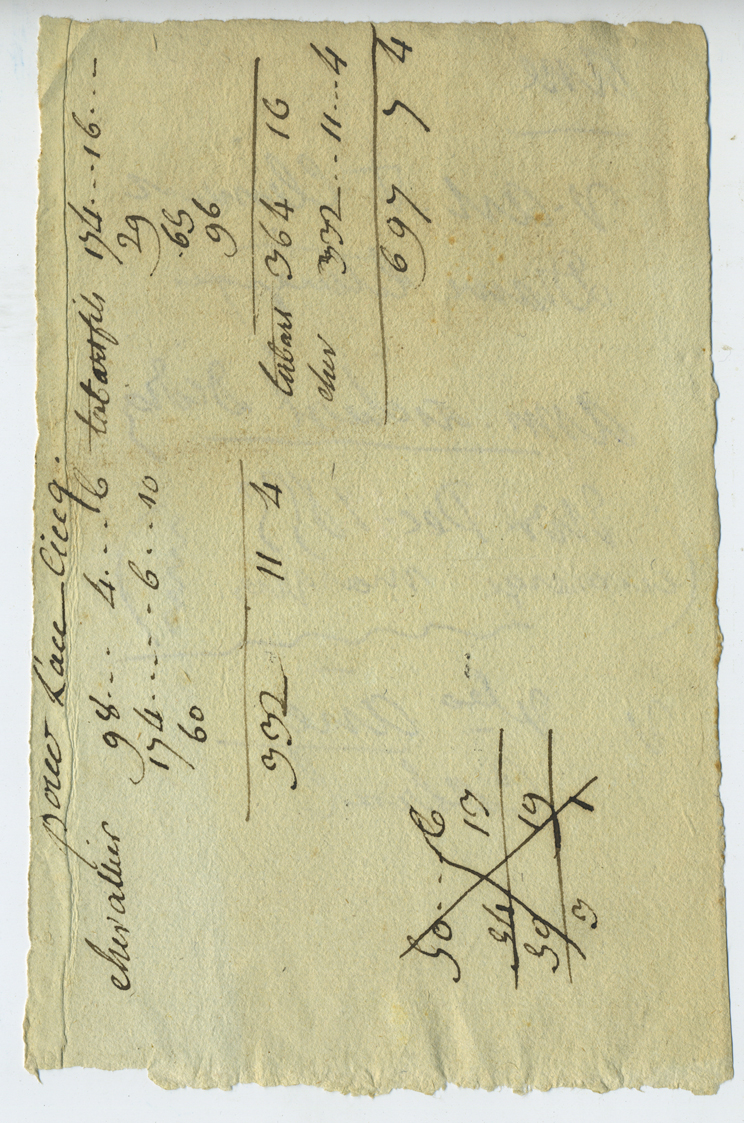 pour L'an Cinq.
chevallier 98... 4... 6
174...... 6... 10
60
332 11 4
tabart fils 174... 16...
29
65
96
tabart 364 16
cher 332... 11... 4
697 7 4
50... 6
13
19
3